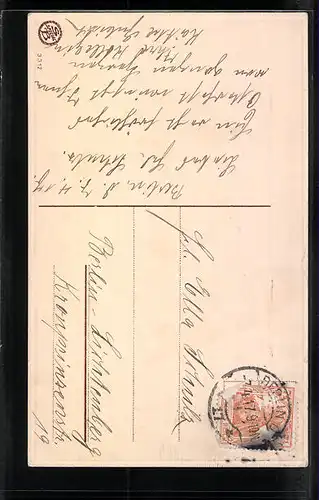 Berlin, d. 7. 4. 17.
Liebes Frl. Schulz.
Ein recht fröhliches
Osterfest wünscht Ihnen
von ganzem Herzen
Ihre Kollegin
Käthe
3317
Frl. Ella Schulz
Berlin-Lichtenberg
Kronprinzenstr.
19
BERLIN